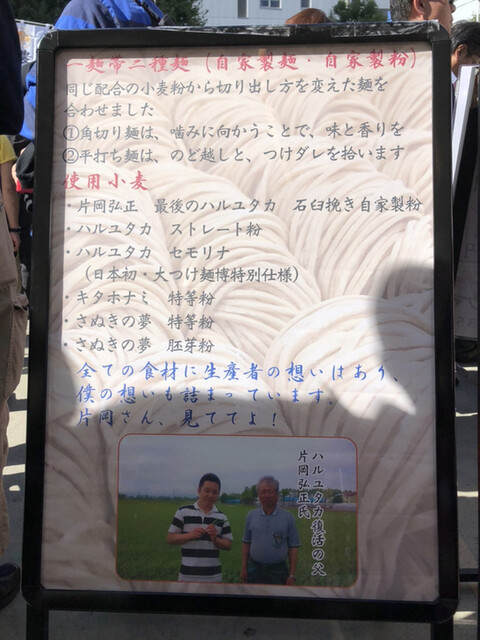 一麺帯二種麺（自家製麺・自家製粉）
同じ配合の小麦粉から切り出し方を変えた麺を
合わせました
①角切り麺は、噛みに向かうことで、味と香りを
②平打ち麺は、のど越しと、つけダレを拾います
使用小麦
・片岡弘正　最後のハルユタカ　石臼挽き自家製粉
・ハルユタカ　ストレート粉
・ハルユタカ　セモリナ
（日本初・大つけ麺博特別仕様）
・キタホナミ　特等粉
・さぬきの夢　特等粉
・さぬきの夢　胚芽粉
全ての食材に生産者の想いはあり、
僕の想いも詰まっています。
片岡さん、見ててよ！
ハルユタカ復活の父
片岡弘正氏